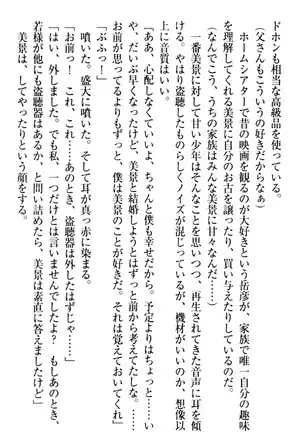 ドホンも相当な高級品を使っている。
（父さんもこういうの好きだからなぁ）
　ホームシアターで昔の映画を観るのが大好きという岳彦が、家族で唯一自分の趣味
を理解してくれる美景に自分のお古を譲ったり、買い与えたりしているのだ。
（なんでこう、うちの家族はみんな美景に甘々なんだ……）
　一番美景に対して甘い少年はそんなことを思いつつ、再生されてきた音声に耳を傾
ける。やはり盗聴したものらしくノイズが混じっているが、機材がいいのか、想像以
上に音質はいい。
『ああ、心配しなくていいよ、ちゃんと僕も幸せだから。予定よりはちょっと……い
や、だいぶ早くなったけど、美景と結婚しようとはずっと前から考えていたし……。
お前が思ってるよりもずっと、僕は美景のことが好きだ。それは覚えておいてくれ』
「ぶふっ！」
　噴いた。盛大に噴いた。そして耳が真っ赤に染まる。
「お前っ！　これ、これ……あのとき、盗聴器は外したはずじゃ……」
「はい、外しました。でも私、それ一つだけとは言いませんでしたよ？　もしあのとき、
若様が他にも盗聴器はあるか、と問い詰めたら、美景は素直に答えましたけど」
　美景は、してやったりという顔をする。